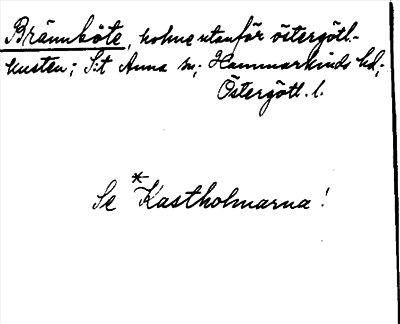 Brännköte, holme utanför östergötl.-
kusten; S:t Anna sn; Hammarkinds hd;
Östergötl. l.
Se *Kastholmarna!